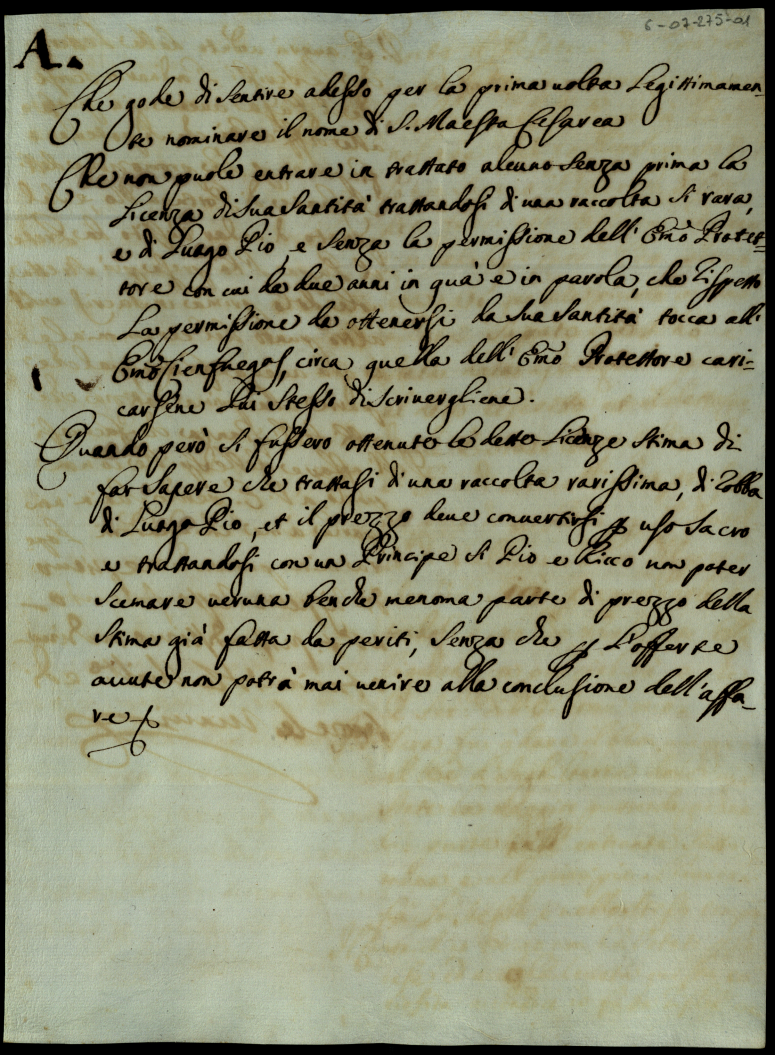 6-07-275-01
A.
Che gode di sentire adesso per la prima uolta legittimamen-
te nominare il nome di S. Maestà Cesarea
Che non puole entrare in trattato alcuno senza prima la
Licenza di Sua Santità trattandosi di una raccolta si rara,
e di Luogo Pio, e senza la permissione dell' Emo Protet-
tore con cui da due anni in quà e in parola, che rispetto
la permissione da ottenersi da Sua Santità tocca all'
Emo Cienfuegos, circa quella dell' Emo Protettore cari-
carsene Lui stesso di scriuergliene.
Quando però si fussero ottenute le dette Licenze stima di
far sapere che trattasi di una raccolta rarissima, di robba
di Luogo Pio, et il prezzo deue conuertirsi p uso sacro
e trattandosi con un Principe si Pio e Ricco non poter
scemare ueruna benche menoma parte di prezzo della
stima già fatta da periti, senza che p l'offerte
auute non potrà mai uenire alla conclusione dell' affa-
re